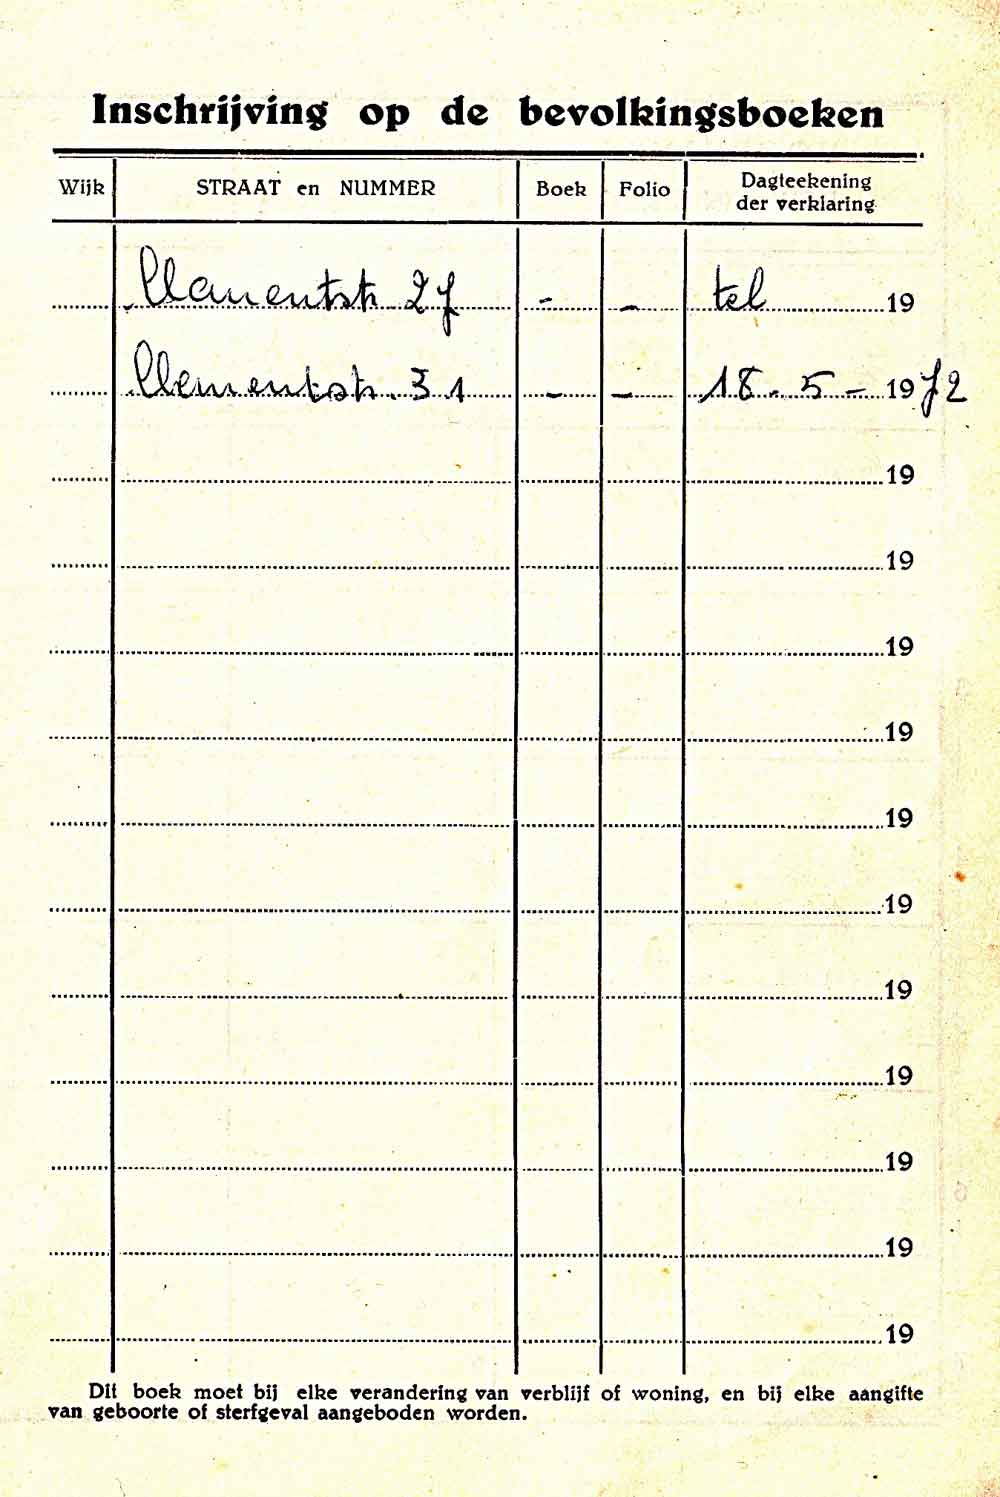 Inschrijving op de bevolkingsboeken
Wijk STRAAT en NUMMER Boek Folio Dagteekening der verklaring
27 - - tel 19
Clementstr. 31 - - 18-5-1972
19
19
19
19
19
19
19
19
19
19
19
Dit boek moet bij elke verandering van verblijf of woning, en bij elke aangifte
van geboorte of sterfgeval aangeboden worden.